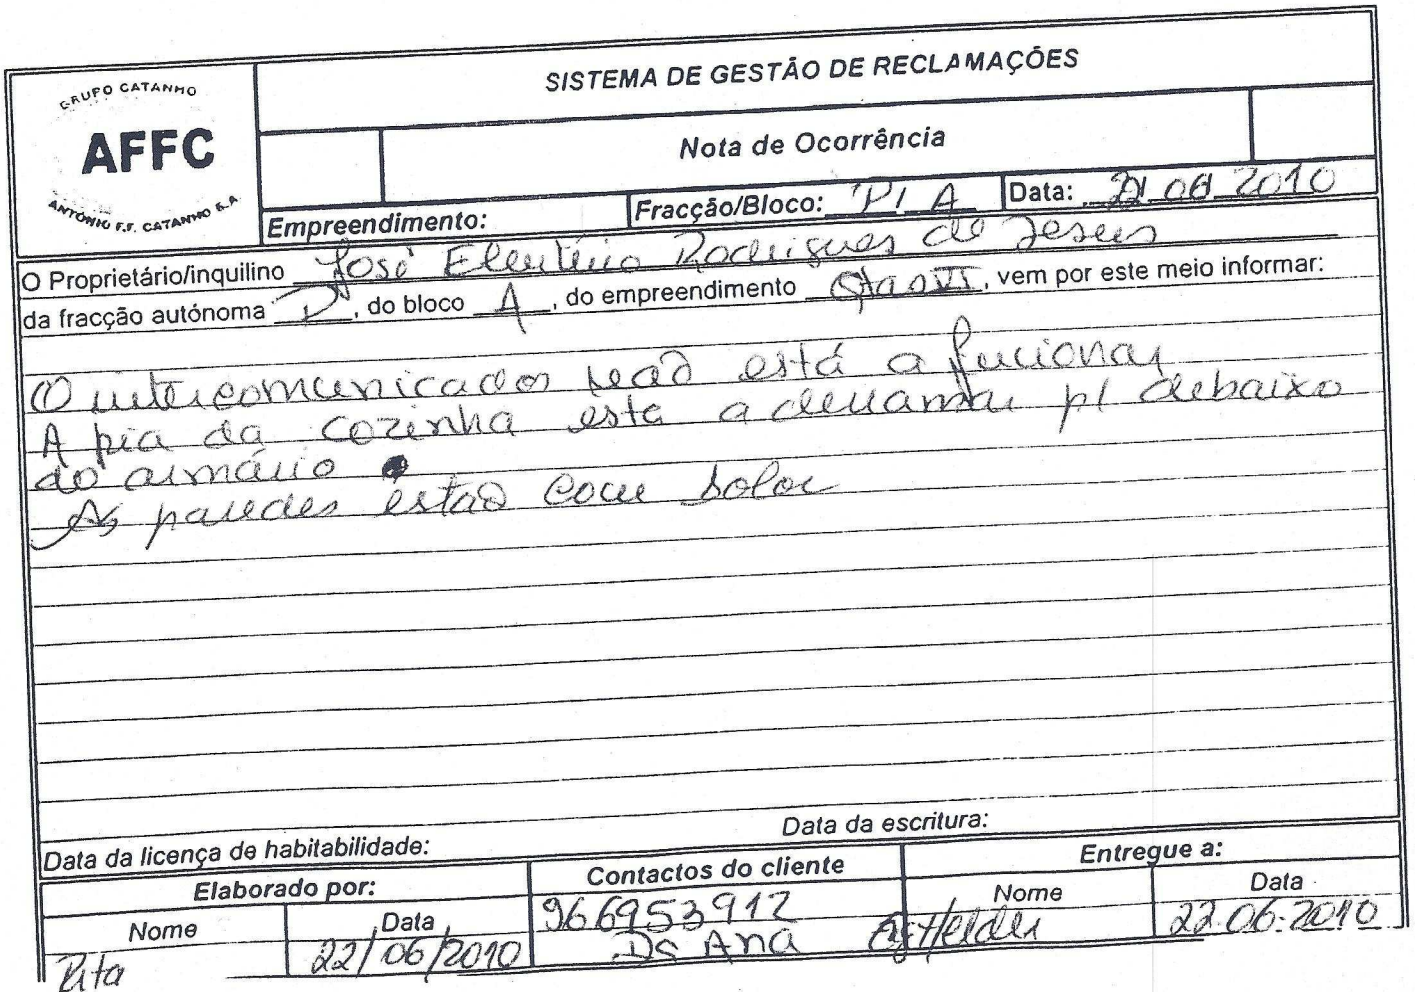 GRUPO CATANHO
AFFC
ANTÓNIO F.F. CATANHO S.A.
SISTEMA DE GESTÃO DE RECLAMAÇÕES
Nota de Ocorrência
Empreendimento: Fracção/Bloco: P/ A Data: 06 2010
O Proprietário/inquilino José Eleutério Rodrigues de Jesus
da fracção autónoma, do bloco A, do empreendimento VI, vem por este meio informar:
O intercomunicador não está a funcionar
A pia da cozinha esta a derramar p/ debaixo
do armário
As paredes estão com bolor
Data da licença de habitabilidade: Data da escritura:
Elaborado por: Contactos do cliente Entregue a:
Nome Data 966953912 Nome Data
Rita 22/06/2010 Dª Ana Helder 22.06.2010